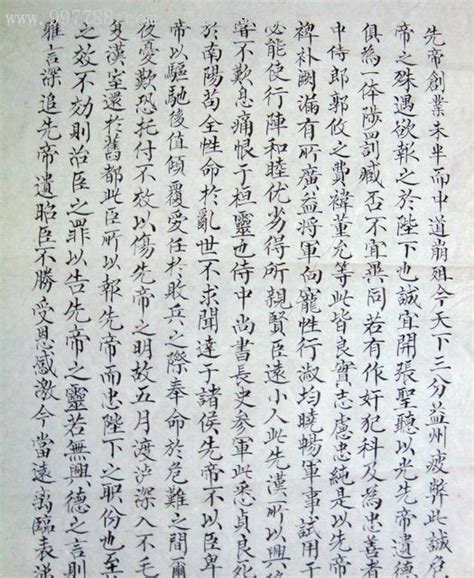 先帝創業未半而中道崩殂今天下三分益州疲弊此誠危
帝之殊遇欲彰之於陛下也誠宜開張聖聽以光先帝遺德
俱為一体陟罰臧否不宜異同若有作奸犯科及為忠善者
中侍郎郭攸之費褘董允等此皆良實志慮忠純是以先帝
裨补闕漏有所廣益將軍向寵性行淑均曉暢軍事試用于
必能使行陣和睦优劣得所親賢臣遠小人此先漢所以興
嘗不歎息痛恨于桓靈也侍中尚書長史參軍此悉貞良死
於南陽苟全性命於亂世不求聞達于諸侯先帝不以臣卑
帝以驅馳後值傾覆受任於敗兵之際奉命於危難之間爾
夜憂歎恐托付不效以傷先帝之明故五月渡泸深入不毛
漢室還於舊都此臣所以報先帝而忠陛下之職份也至
之效不効則治臣之罪以告先帝之靈若無興德之言則
雅言深追先帝遺昭臣不勝受恩感激今當遠离臨表涕